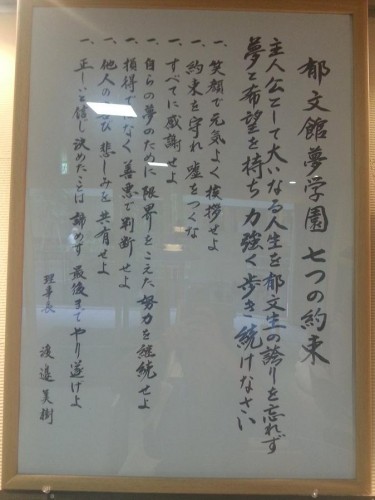 郁文館夢学園 七つの約束
主人公として大いなる人生を郁文生の誇りを忘れず
夢と希望を持ち力強く歩き続けなさい
一、笑顔で元気よく挨拶せよ
一、約束を守れ 嘘をつくな
一、すべてに感謝せよ
一、自らの夢のために限界をこえた努力を継続せよ
一、損得でなく、善悪で判断せよ
一、他人の喜び 悲しみを共有せよ
一、正しいと信じ決めたことは 諦めず 最後までやり遂げよ
理事長 渡邉美樹